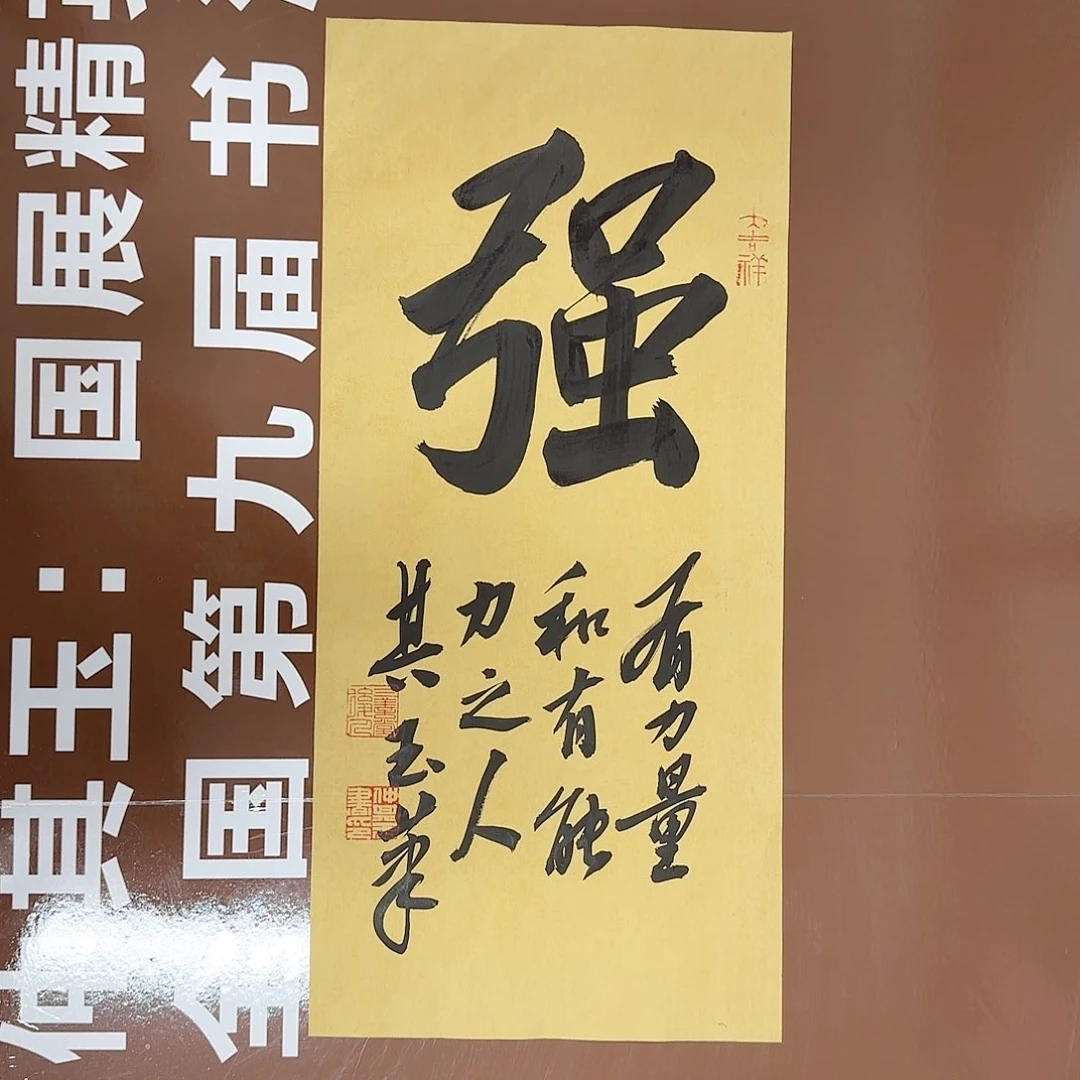 强
有力量
和有能
力之人
其玉笔
大吉祥
仲其玉：国展精
全国第九届书